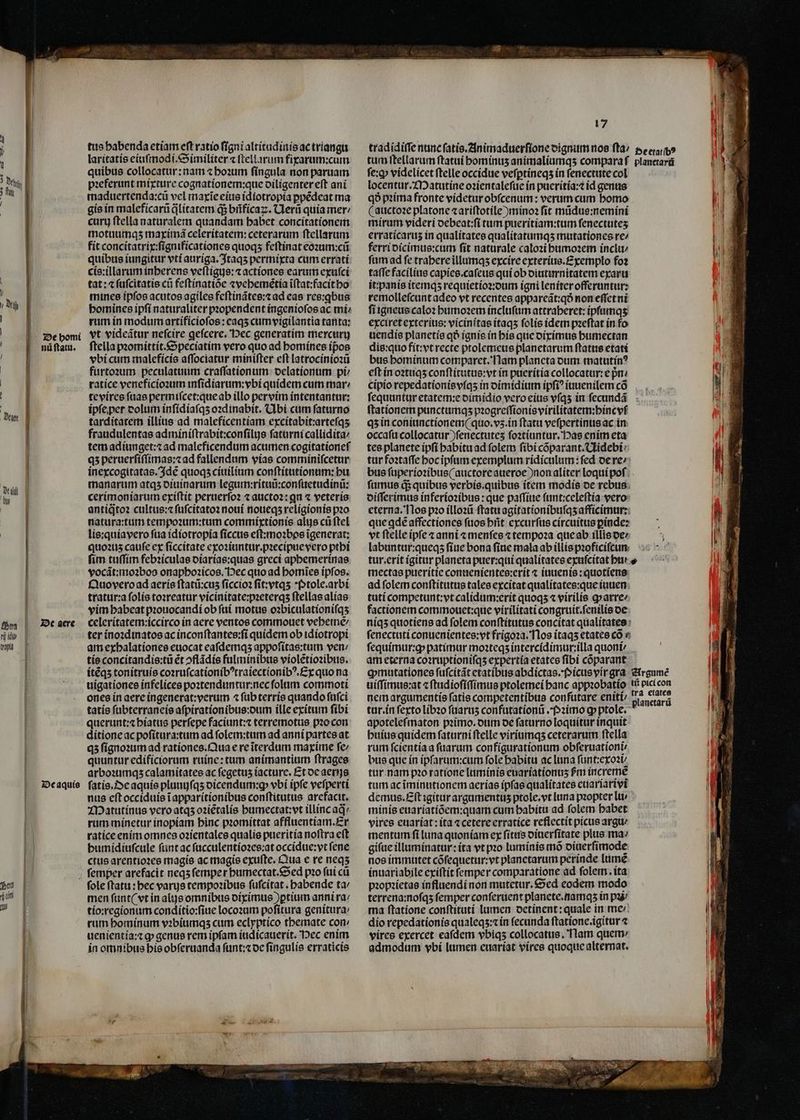 17
tus habenda etiam est ratio signi altitudinis ac triangu
laritatis eiusmodi. Similiter ⁊ stellarum fixarum: cum
quibus collocatur: nam ⁊ hozum singula non paruam
præferunt mixture cognationem: que diligenter est ani
maduertenda: cū vel maxīe eius idiotropia ppēdeat ma
gis in maleficarū q̄litatem q̄ꝫ bn̄ficaꝝ. Verū quia mer⸗
cury stella naturalem quandam habet concitationem
motuumqꝫ maximā celeritatem: ceterarum stellarum
fit concitatrix: significationes quoqꝫ festinat eoꝛum: cū
quibus iungitur vti auriga. Itaqꝫ permixta cum errati
cis: illarum inherens vestigijs: ⁊ actiones earum exusci
tat: ⁊ suscitatis cū festinatiōe ⁊ vehemētia īstat: facit ho
mines ipsos acutos agiles festinātes: ⁊ ad eas res: qbus
homines ipsi naturaliter pꝛopendent ingeniosos ac mi⸗
rum in modum artificiosos: eaqꝫ cum vigilantia tanta:
De homi
nū statu.
vt videātur nescire q̄escere. Hec generatim mercurij
stella pꝛomittit. Speciatim vero quo ad homines ip̄os
vbi cum maleficis associatur minister est latrociniorū
furtoꝛum peculatuum crassationum delationum pi⸗
ratice veneficioꝛum insidiarum: vbi quidem cum mar⸗
te vires suas permiscet: que ab illo per vim intentantur:
ipse per dolum insidiasqꝫ oꝛdinabit. Vbi cum saturno
tarditatem illius ad maleficentiam excitabit: artesqꝫ
fraudulentas administrabit: consilijs saturni callidita⸗
tem adiunget: ⁊ ad maleficendum acumen cogitationesqꝫ
peruersissimas: ⁊ ad fallendum vias comminiscetur
inexcogitatas. Idē quoqꝫ ciuilium constitutionum: hu
manarum atqꝫ diuinarum legum: rituū: consuetudinū:
cerimoniarum existit peruersoꝛ ⁊ auctoꝛ: qn ⁊ veteris
antiq̄toꝛ cultus: ⁊ suscitatoꝛ noui noueqꝫ religionis pꝛo
natura: tum tempoꝛum: tum commixtionis alijs cū stel
lis: quia vero sua idiotropia siccus est: moꝛbos īgenerat:
quoꝛuꝫ cause ex siccitate exoꝛiuntur. pꝛecipue vero pthi
sim tussim febꝛiculas diarias: quas greci aphemerinas
vocāt: moꝛbos onaphoꝛicos. Hec quo ad homīes ipsos.
De aere
Quovero ad aeris statū: cuꝫ siccioꝛ sit: vtqꝫ Ptole. arbi
tratur: a solis toꝛreatur vicinitate: pꝛeterqꝫ stellas alias
vim habeat pꝛouocandi ob sui motus oꝛbiculationisqꝫ
celeritatem: iccirco in aere ventos commouet vehemē⸗
ter inoꝛdinatos ac inconstantes: si quidem ob idiotropi
am exhalationes euocat easdemqꝫ appositas: tum ven⸗
tis concitandis: tū ēt ⁊ flādis fulminibus violētioꝛibus.
itēqꝫ tonitruis coꝛruscationibꝰ traiectionibꝰ. Ex quo na
uigationes infelices poꝛtenduntur. nec solum commoti
ones in aere ingenerat: verum ⁊ sub terris quando susci
tatis subterraneis aspirationibus: dum ille exitum sibi
querunt: ⁊ hiatus persepe faciunt: ⁊ terremotus pꝛo con
ditione ac positura: tum ad solem: tum ad anni partes at
qꝫ signoꝛum ad rationes. Qua e re iterdum maxime se⸗
quuntur edificiorum ruine: tum animantium strages
arboꝛumqꝫ calamitates ac segetuꝫ iacture. Et de aerijs
De aquis
satis. De aquis pluuijsqꝫ dicendum: ꝙ vbi ipse vesperti
nus est occiduis ī apparitionibus constitutus arefacit.
Matutinus vero atqꝫ oꝛiētalis humectat: vt illinc aq̄⸗
rum minetur inopiam hinc pꝛomittat affluentiam. Er
ratice enim omnes oꝛientales qualis pueritia nostra est
humidiuscule sunt ac succulentioꝛes: at occidue: vt sene
ctus arentioꝛes magis ac magis exuste. Qua e re neqꝫ
semper arefacit neqꝫ semper humectat. Sed pꝛo sui cū
sole statu: hec varijs tempoꝛibus suscitat. habende ta⸗
men sunt (vt in alijs omnibus diximus) ptium anni ra⸗
tio: regionum conditio: siue locoꝛum positura genitura⸗
rum hominum vꝛbiumqꝫ cum eclyptico themate con⸗
uenientia: ⁊ ꝙ genus rem ipsam iudicauerit. Hec enim
in omnibus his obseruanda sunt: ⁊ de singulis erraticis
tradidisse nunc satis. Animaduersione dignum nos sta⸗
tum stellarum statui hominuꝫ animaliumqꝫ comparas
se: ꝙ videlicet stelle occidue vesptineqꝫ in senectute col
locentur. Matutine oꝛientalesue in pueritia: ⁊ id genus
De etatibꝰ
planetarū
qd̄ pꝛima fronte videtur obscenum: verum cum homo
(auctoꝛe platone ⁊ aristotile) minoꝛ sit mūdus: nemini
mirum videri debeat: si tum pueritiam: tum senectutes
erraticaruꝫ in qualitates qualitatumqꝫ mutationes re⸗
ferri dicimus: cum sit naturale caloꝛi humoꝛem inclu⸗
sum ad se trahere illumqꝫ excire exterius. Exemplo foꝛ
tasse facilius capies. caseus qui ob diuturnitatem exaru
it: panis itemqꝫ requietioꝛ: dum igni leniter offeruntur:
remollescunt adeo vt recentes appareāt: qd̄ non esset ni
si igneus caloꝛ humoꝛem inclusum attraheret: ipsumqꝫ
exciret exterius: vicinitas itaqꝫ solis idem pꝛestat in fo
uendis planetis qd̄ ignis in his que diximus humectan
dis: quo fit: vt recte ptolemeus planetarum statꝫ etati
bus hominum comparet. Nam planeta dum matutinꝰ
est in oꝛtuqꝫ constitutus: vt in pueritia collocatur: e pꝛin⸗
cipio repedationis vsqꝫ in dimidium ipsiꝰ iuuenilem cō
sequuntur etatem: e dimidio vero eius vsqꝫ in secundā
stationem punctumqꝫ pꝛogressionis virilitatem: hinc vs
qꝫ in coniunctionem (quo. vꝫ. in statu vespertinus ac in
occasu collocatur) senectuteꝫ soꝛtiuntur. Has enim eta
tes planete ipsi habitu ad solem sibi cōparant. Videbi⸗
tur foꝛtasse hoc ipsum exemplum ridiculum: sed de re⸗
bus superioꝛibus (auctore aueroe) non aliter loqui pos
sumus q̄ꝫ quibus verbis. quibus item modis de rebus
disserimus inferioꝛibus: que passiue sunt: celestia vero
eterna. Nos pꝛo illoꝛū statu agitationibusqꝫ afficimur:
que qdē affectiones suos hn̄t excursus circuitus pinde:
vt stelle ipse ⁊ anni ⁊ menses ⁊ tempoꝛa que ab illis de⸗
labuntur: queqꝫ siue bona siue mala ab illis pꝛoficiscun⸗
tur. erit igitur planeta puer: qui qualitates exuscitat hu⸗
mectas pueritie conuenientes: erit ⁊ iuuenis: quotiens
ad solem constitutus tales excitat qualitates: que iuuen
tuti competunt: vt calidum: erit quoqꝫ ⁊ virilis ꝙ arre⸗
factionem commouet: que virilitati congruit. senilis de
niqꝫ quotiens ad solem constitutus concitat qualitates
senectuti conuenientes: vt frigoꝛa. Nos itaqꝫ etates cō
sequimur: ꝙ patimur moꝛteqꝫ intercidimur: illa quoni⸗
am eterna coꝛruptionisqꝫ expertia etates sibi cōparant
ꝙ mutationes suscitāt etatibus abdictas. Picus vir gra
Argumē
tū pici con
tra etates
planetarū
uissimus: at ⁊ studiosissimus ptolemei hanc appꝛobatio
nem argumentis satis competentibus confutare eniti⸗
tur. in sexto libꝛo suaruꝫ confutationū. Pꝛimo ꝙ ptole.
apotelesmaton pꝛimo. dum de saturno loquitur inquit
huius quidem saturni stelle viriumqꝫ ceterarum stella
rum scientia a suarum configurationum obseruationi⸗
bus que in ipsarum: cum sole habitu ac luna sunt: exoꝛi⸗
tur nam pꝛo ratione luminis euariationuꝫ fm incremē
tum ac iminutionem aerias ipsas qualitates euariari vi
demus. Est igitur argumentuꝫ ptole. vt luna pꝛopter lu⸗
minis euariatiōem: quam cum habitu ad solem habet
vires euariat: ita ⁊ cetere erratice reflectit picus argu⸗
mentum si luna quoniam ex situs diuersitate plus ma⸗
gisue illuminatur: ita vt pꝛo luminis mō diuersimode
nos immutet cōsequetur: vt planetarum perinde lumē
inuariabile existit semper comparatione ad solem. ita
pꝛopꝛietas influendi non mutetur. Sed eodem modo
terrena: nosqꝫ semper conferuent planete. namqꝫ in pꝛi⸗
ma statione constituti lumen detinent: quale in me⸗
dio repedationis qualeqꝫ: ⁊ in secunda statione. igitur ⁊
vires exercet easdem vbiqꝫ collocatus. Nam quem⸗
admodum vbi lumen euariat vires quoque alternat.